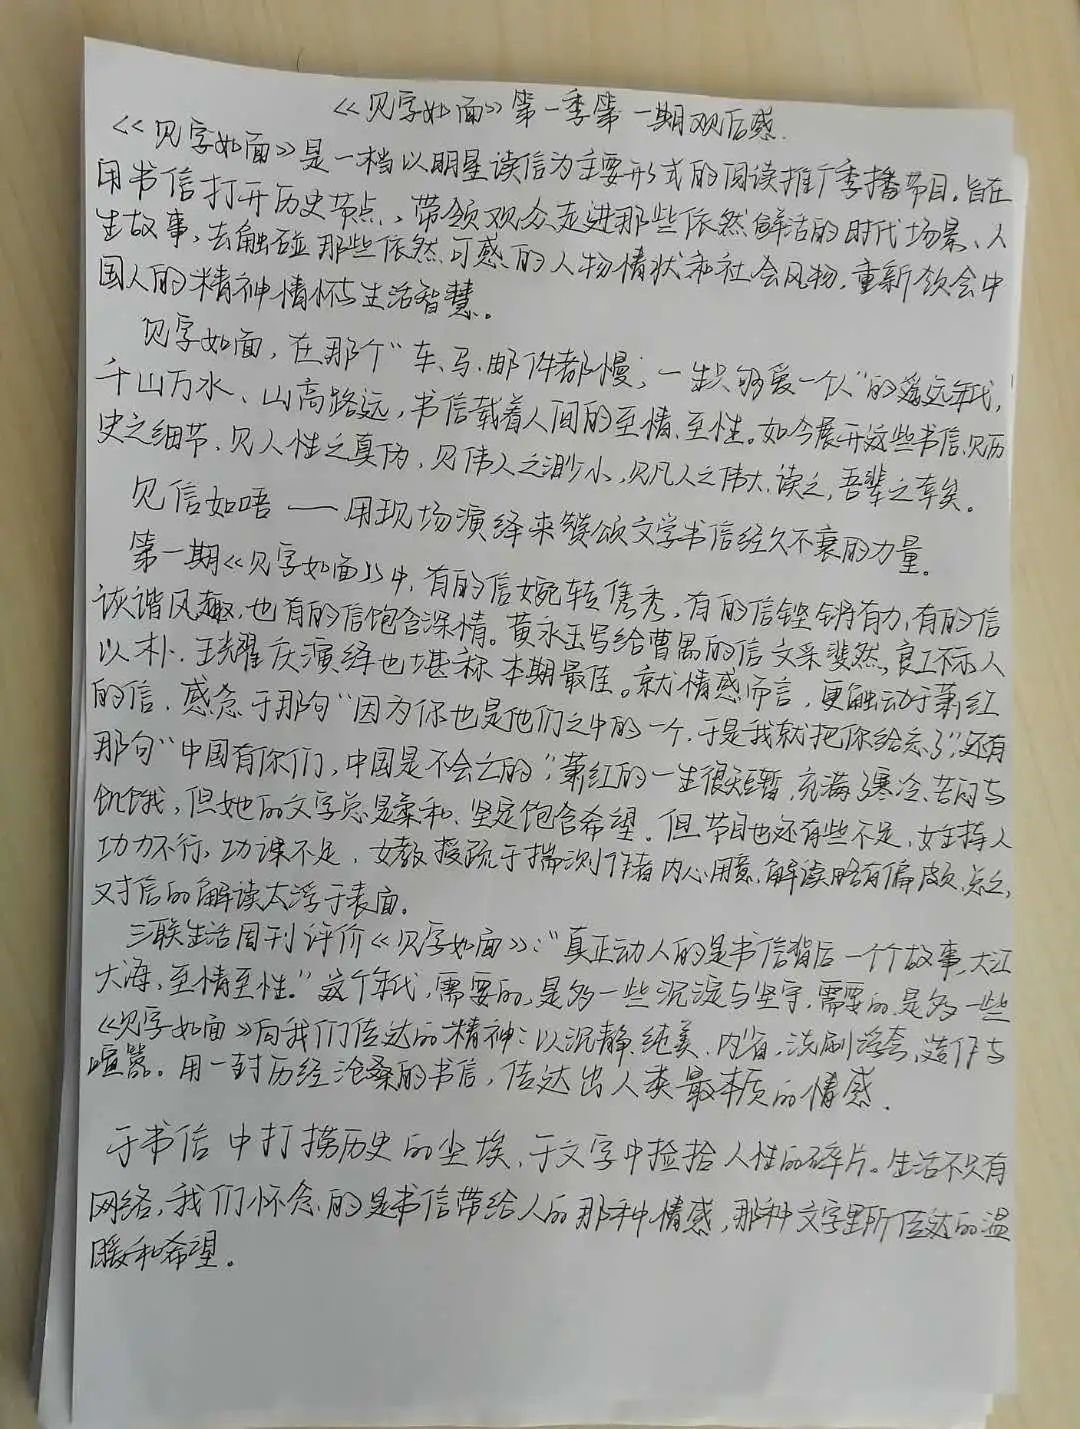 《见字如面》第一季第一期观后感.
《见字如面》是一档以明星读信为主要形式的阅读推广季播节目。旨在
用书信打开历史节点、带领观众走进那些依然鲜活的时代场景、人
生故事,去触碰那些依然可感的人物情状和社会风物,重新领会中
国人的精神情怀与生活智慧。
见字如面,在那个"车、马、邮件都慢,一生只够爱一个人"的遥远年代,
千山万水、山高路远,书信载着人间的至情、至性。如今展开这些书信,见历
史之细节、见人性之真伪,见伟人之渺小,见凡人之伟大,读之,吾辈之幸矣。
见信如唔——用现场演绎来赞颂文学书信经久不衰的力量。
第一期《见字如面》中,有的信婉转隽秀,有的信铿锵有力,有的信
诙谐风趣,也有的信饱含深情。黄永玉写给曹禺的信文采斐然,良工不示人
以朴.王耀庆演绎也堪称本期最佳。就情感而言,更触动于萧红
的信,感念于那句"因为你也是他们之中的一个,于是我就把你给忘了",还有
那句"中国有你们,中国是不会亡的",萧红的一生很短暂,充满了寒冷、苦闷与
饥饿,但她的文字总是柔和、坚定饱含希望.但节目也还有些不足,女主持人
功力不行,功课不足,女教授疏于揣测作者内心用意,解读略有偏颇,总之,
对信的解读太浮于表面.
三联生活周刊评价《见字如面》:"真正动人的是书信背后一个个故事,大江
大海,至情至性。"这个年代,需要的,是多一些沉淀与坚守,需要的是多一些
《见字如面》向我们传达的精神:以沉静、纯美、内省,洗刷浮夸,造作与
喧嚣。用一封历经沧桑的书信,传达出人类最本质的情感.
于书信中打捞历史的尘埃,于文字中捡拾人性的碎片。生活不只有
网络,我们怀念的是书信带给人的那种情感,那种文字里所传达的温
暖和希望。